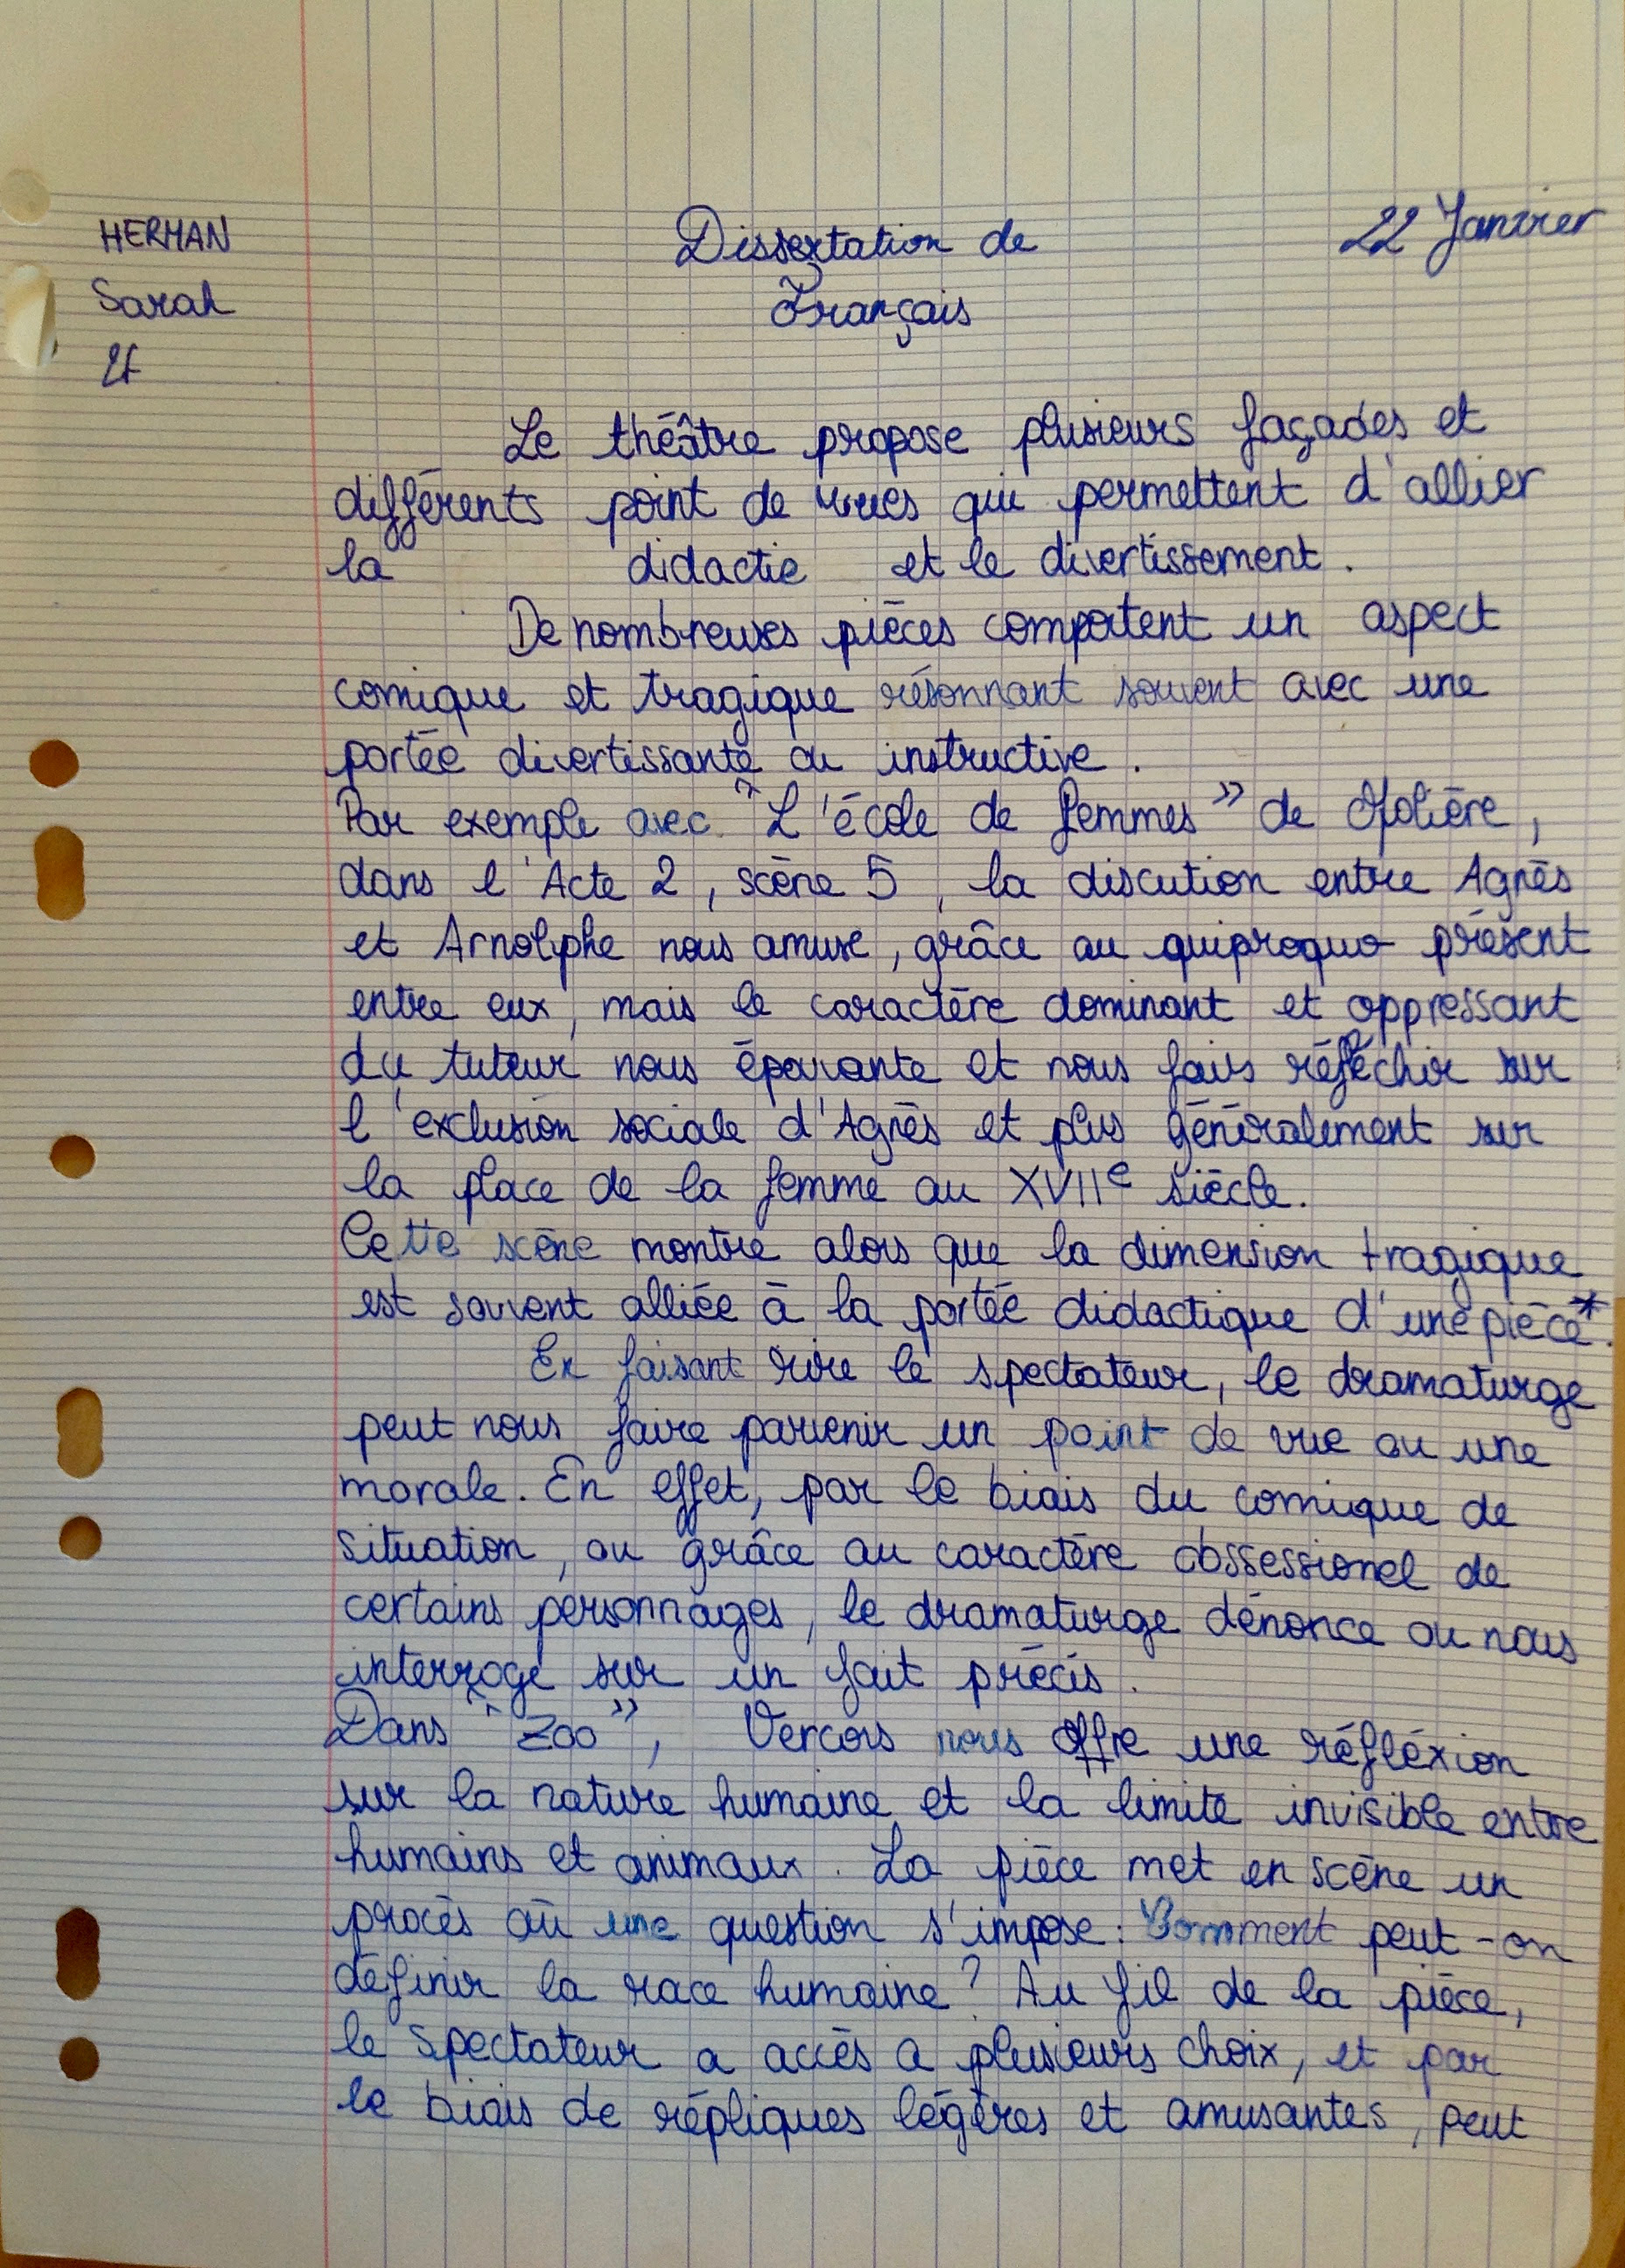 HERMAN
Sarah
2F
Dissertation de
Français
22 Janvier
Le théâtre propose plusieurs façades et
différents point de vues qui permettent d'allier
la didactie et le divertissement.
De nombreuses pièces comportent un aspect
comique et tragique résonnant souvent avec une
portée divertissante ou instructive.
Par exemple avec "L'école de femmes" de Molière,
dans l'Acte 2, scène 5, la discution entre Agnès
et Arnolphe nous amuse, grâce au quiproquo présent
entre eux, mais le caractère dominant et oppressant
du tuteur nous épouvante et nous fais réfléchir sur
l'exclusion sociale d'Agnès et plus généralement sur
la place de la femme au XVIIe siècle.
Cette scène montre alors que la dimension tragique
est souvent alliée à la portée didactique d'une pièce*.
En faisant rire le spectateur, le dramaturge
peut nous faire parvenir un point de vue ou une
morale. En effet, par le biais du comique de
situation, ou grâce au caractère obssessionel de
certains personnages, le dramaturge dénonce ou nous
interroge sur un fait précis.
Dans "Zoo", Vercors nous offre une réfléxion
sur la nature humaine et la limite invisible entre
humains et animaux. La pièce met en scène un
procès où une question s'impose: Comment peut-on
définir la race humaine? Au fil de la pièce,
le spectateur a accès a plusieurs choix, et par
le biais de répliques légères et amusantes, peut